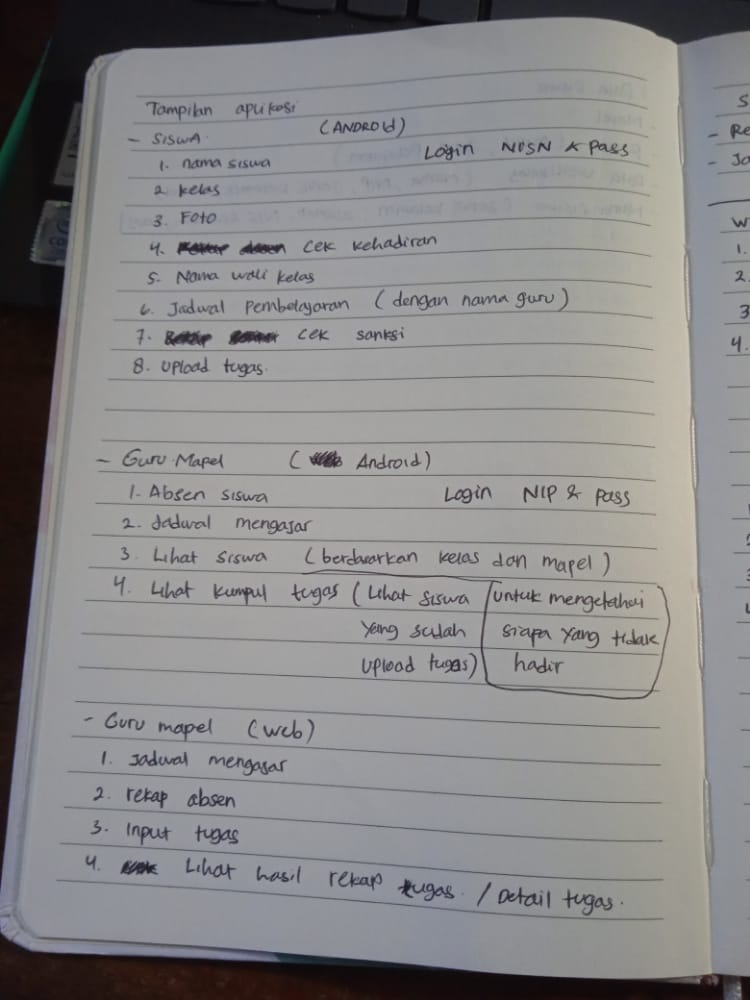 Tampilan aplikasi
- SISWA (ANDROID)
1. nama siswa Login NISN & pass
2. kelas
3. Foto
4. cek kehadiran
5. Nama wali kelas
6. Jadwal Pembelajaran (dengan nama guru)
7. cek sanksi
8. Upload tugas.
- Guru Mapel (Android)
1. Absen siswa Login NIP & pass
2. Jadwal mengajar
3. Lihat siswa (berdasarkan kelas dan mapel)
4. Lihat kumpul tugas (Lihat siswa untuk mengetahui
yang sudah siapa yang tidak
upload tugas) hadir
- Guru mapel (web)
1. Jadwal mengajar
2. rekap absen
3. Input tugas
4. Lihat hasil rekap tugas. / Detail tugas.
S
- Re
- Ja
W
1.
2.
3
4.